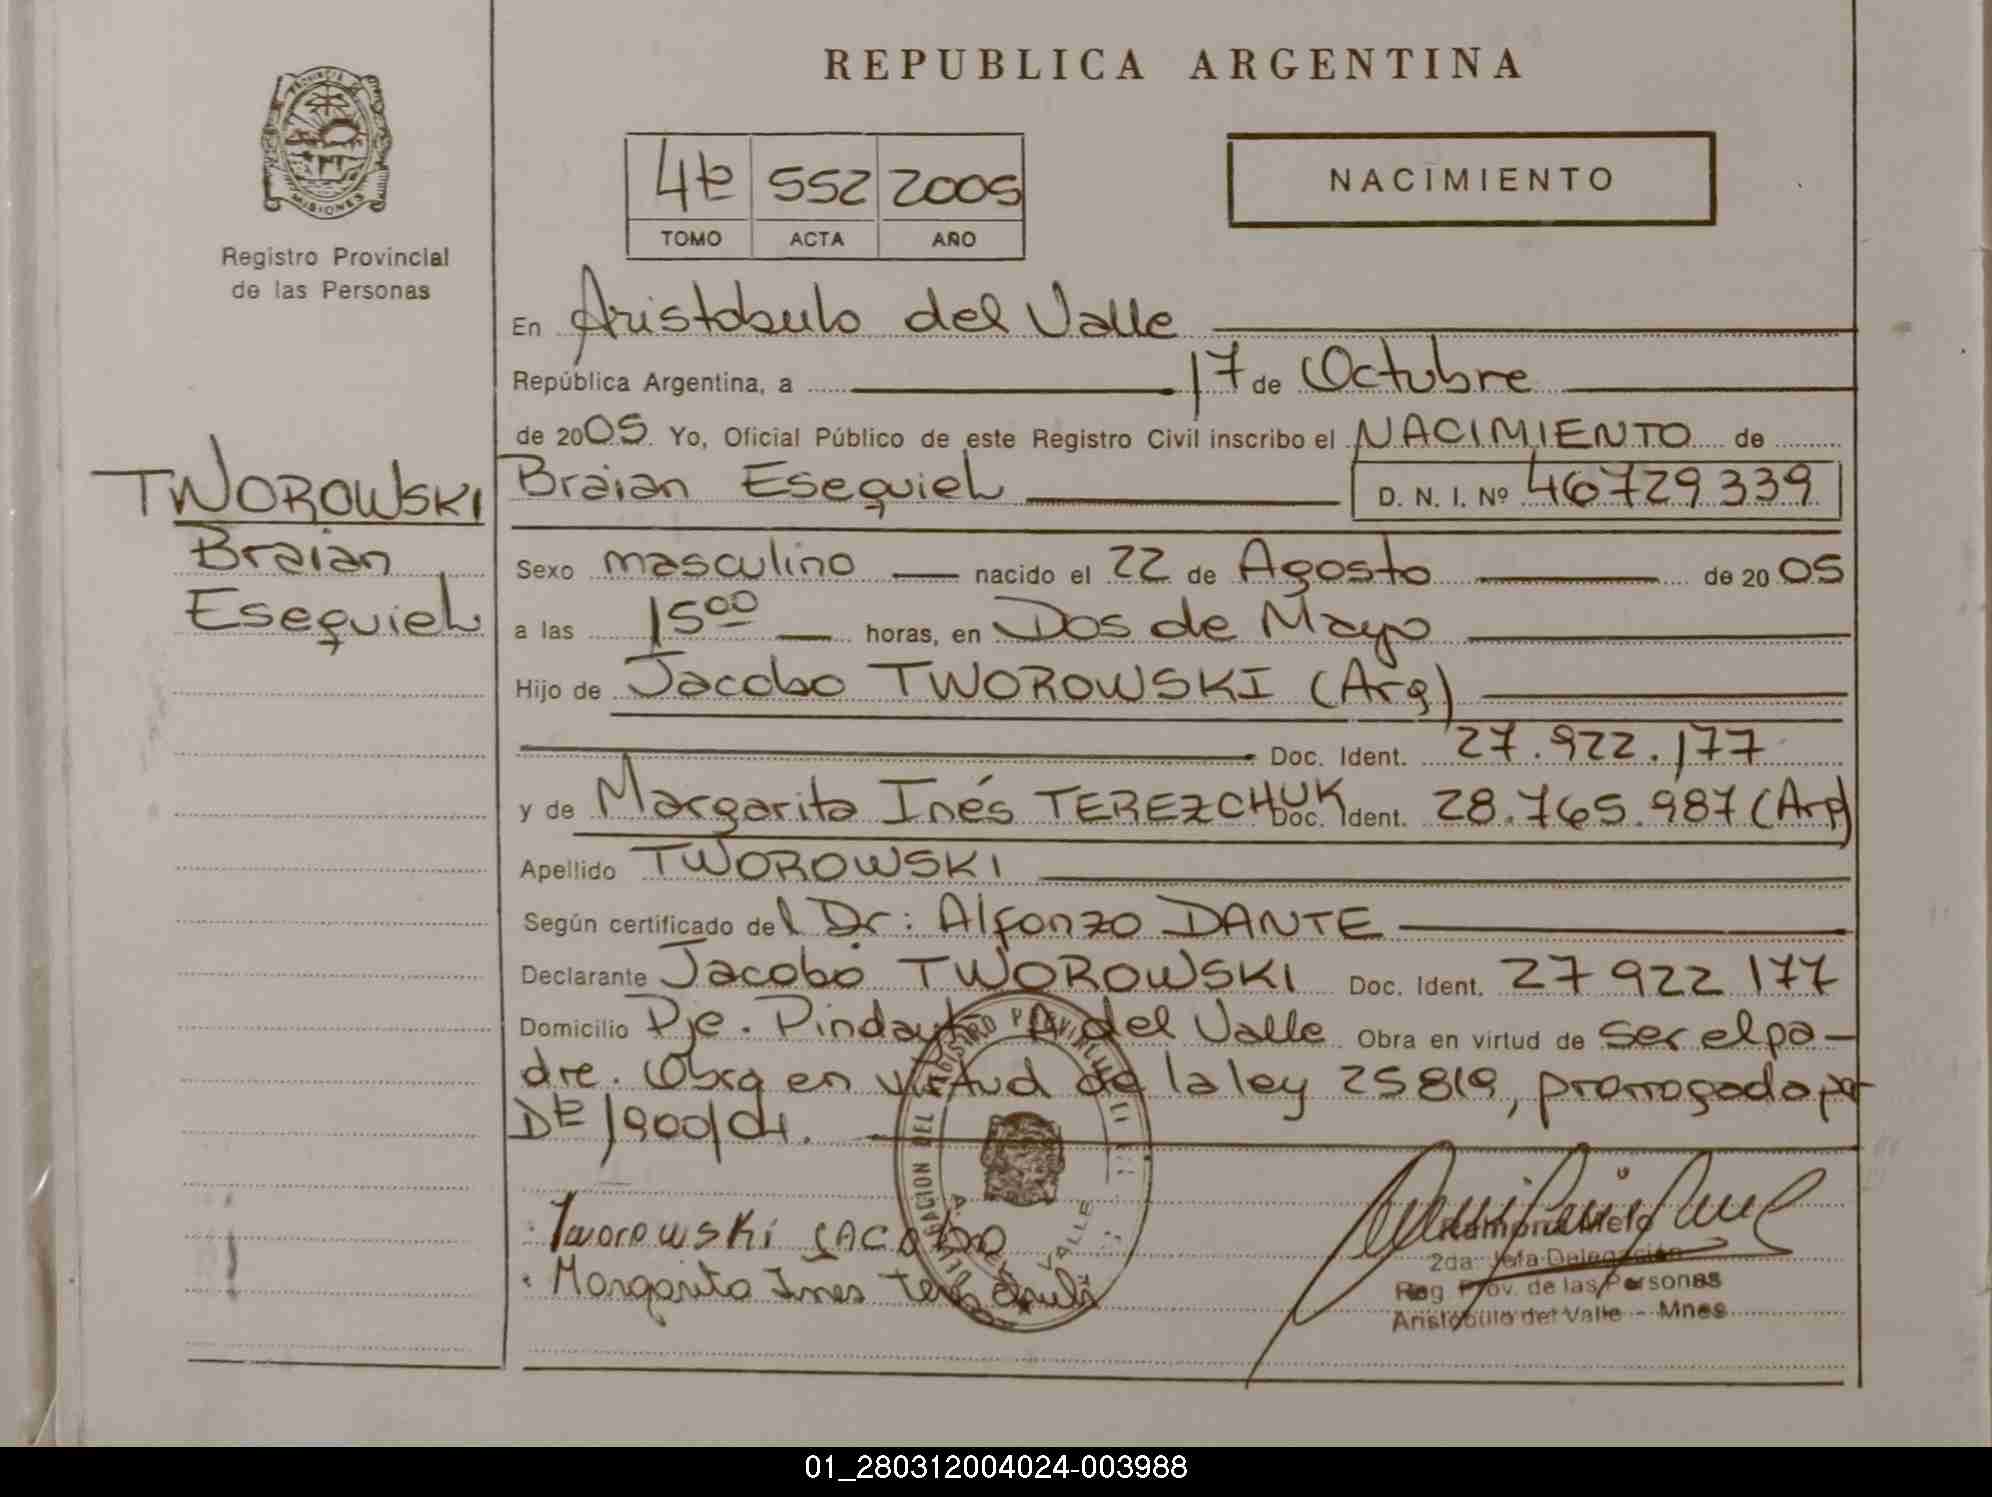 REPUBLICA ARGENTINA
PROVINCIA DE
MISIONES
Registro Provincial
de las Personas
4to 552 2005
TOMO ACTA AÑO
NACIMIENTO
En Aristobulo del Valle
República Argentina, a 17 de Octubre
de 2005. Yo, Oficial Público de este Registro Civil inscribo el NACIMIENTO de
TWOROWSKI
Braian
Esequiel
Braian Esequiel D. N. I. Nº 46729339
Sexo masculino nacido el 22 de Agosto de 2005
a las 15 00 horas, en Dos de Mayo
Hijo de Jacobo TWOROWSKI (Arg)
Doc. Ident. 27.922.177
y de Margarita Inés TEREZCHUK Doc. Ident. 28.765.987 (Arg)
Apellido TWOROWSKI
Según certificado del Dr: Alfonzo DANTE
Declarante Jacobo TWOROWSKI Doc. Ident. 27 922 177
Domicilio Pje. Pindayti A del Valle Obra en virtud de ser el pa-
dre. Obra en virtud de la ley 25819, prorrogada por
DTO 1900/04.
Tworowski JACOBO
Margarita Ines
Ramona Melo
2da. Jefa Delegación
Reg Prov. de las Personas
Aristóbulo del Valle - Mnes
01_280312004024-003988